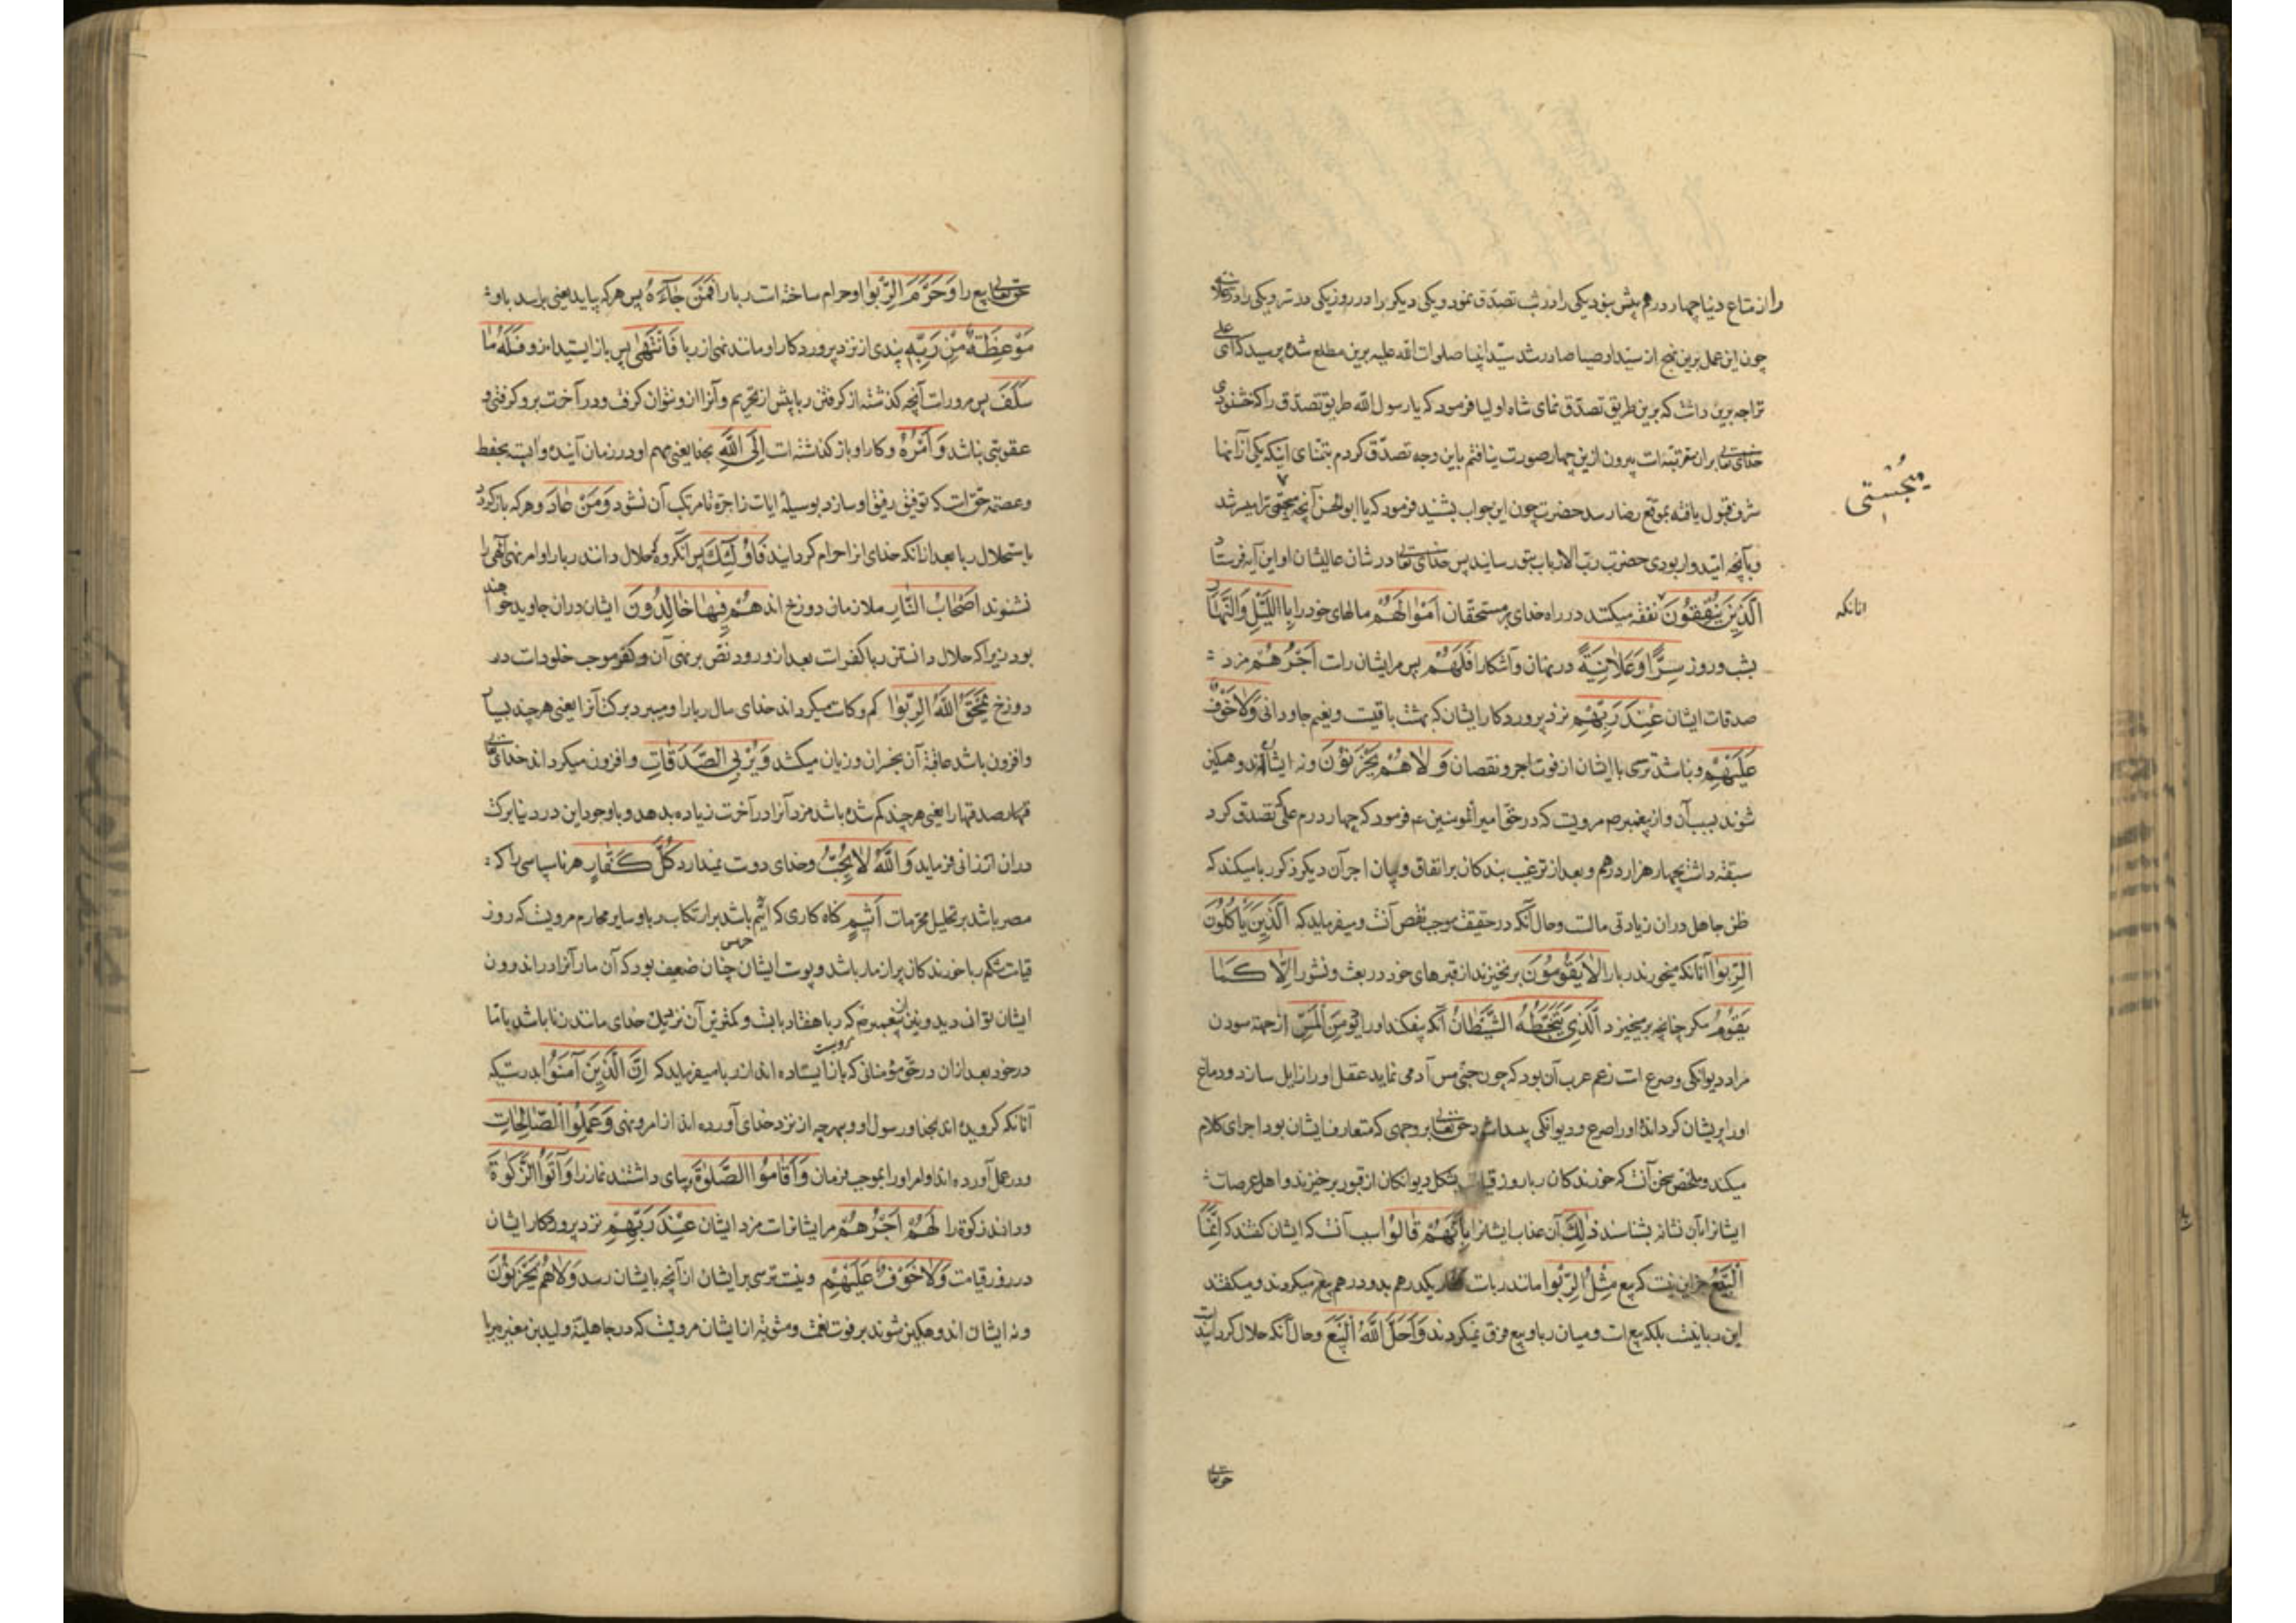 را از متاع دنیا چهار درهم بیش نبود یکی را در شب تصدق نمود و یکی دیگر را در روز یکی در سر و یکی را در علانیه
چون این عمل برین نهج از سید اوصیا صادر شد سید انبیا صلوات الله علیه برین مطلع شده پرسید که ای علی
ترا چه برین داشت که برین طریق تصدق نمای شاه اولیا فرمود که یا رسول الله طریق تصدق را که خشنودی
خدای تعالی بران مترتبست بیرون ازین چهار صورت نیافتم باین وجه تصدق کردم بتمنای اینکه یکی از آنها
شرف قبول یافته بموقع رضا رسد حضرت چون این جواب بشنید فرمود که یا ابوالحسن آنچه میجستی ترا میسر شد
میجستی
و بآنچه امیدوار بودی حضرت رب الارباب بتو رسانید پس خدای تعالی در شان عالیشان او این آیه فرستاد
الَّذِینَ یُنْفِقُونَ نفقه میکنند در راه خدای بر مستحقان اَمْوالَهُمْ مالهای خود را بِاللَّیْلِ وَالنَّهارِ
انانکه
بشب و روز سِرًّا وَعَلانِیَةً در نهان و آشکارا فَلَهُمْ پس مرایشان راست اَجْرُهُمْ مزد
صدقات ایشان عِنْدَ رَبِّهِمْ نزد پروردکار ایشان که بهشت باقیست و نعیم جاودانی وَلا خَوْفٌ
عَلَیْهِمْ و نباشد ترسی با ایشان از فوت اجر و نقصان وَلا هُمْ یَحْزَنُونَ و نه ایشان اندوهکین
شوند بسبب آن و از پیغمبر صم مرویست که در حق امیر المومنین عم فرمود که چهار درم علی تصدق کرد
سبقت داشت بچهار هزار درهم و بعد از ترغیب بندکان بر انفاق و بیان اجر آن دیکر ذکر ربا میکند که
ظن جاهل دران زیادتی مالست و حال آنکه در حقیقت موجب نقص آنست و میفرماید که اَلَّذِینَ یَأْکُلُونَ
الرِّبٰوا آنانکه میخورند ربا را لا یَقُومُونَ برنخیزند از قبرهای خود در بعث و نشور اِلّا کَما
یَقُومُ مکر چنانچه برمیخیزد اَلَّذِی یَتَخَبَّطُهُ الشَّیْطانُ آنکه بیفکند او را دیو مِنَ الْمَسِّ از جهة سودن
مراد دیوانکی و صرع است زعم عرب آن بود که چون جنی مس آدمی نماید عقل او را زایل سازد و دماغ
او را پریشان کرداند و او را صرع و دیوانکی پیدا شود حق تعالی بر وجهی که متعارف ایشان بود اجرای کلام
میکند و ملخص سخن آنست که خورندکان ربا روز قیامت بشکل دیوانکان از قبور برخیزند و اهل عرصات
ایشانرا بآن نشانه بشناسند ذٰلِکَ آن عذاب ایشانرا بِاَنَّهُمْ قالُوا بسبب آنست که ایشان کفتند که اِنَّمَا
الْبَیْعُ جز این نیست که بیع مِثْلُ الرِّبٰوا مانند رباست یکدرهم بدو درهم بیع میکردند و میکفتند
این ربا نیست بلکه بیع است و میان ربا و بیع فرق نمیکردند وَاَحَلَّ اللّٰهُ الْبَیْعَ و حال آنکه حلال کردانیدست
حق تعالی
حق تعالی بیع را وَحَرَّمَ الرِّبٰوا و حرام ساخته است ربا را فَمَنْ جآءَهُ پس هر که بیاید یعنی برسد باو
مَوْعِظَةٌ مِنْ رَبِّهِ پندی از نزد پروردکار او مانند نهی از ربا فَانْتَهٰی پس باز ایستد ازو فَلَهُ ما
سَلَفَ پس مروراست آنچه کذشته از کرفتن ربا پیش از تحریم و آنرا ازو نتوان کرفت و در آخرت برو کرفتی و
عقوبتی نباشد وَاَمْرُهُ و کار او باز کذشته است اِلَی اللّٰهِ بخدا یعنی مهم او در زمان آینده وابسته بحفظ
و عصمة حق است که توفیق رفیق او سازد بوسیلهٔ ایات زاجره تا مرتکب آن نشود وَمَنْ عادَ و هر که باز کردد
باستحلال ربا بعد از انکه خدای انرا حرام کردانید فَاُولٰئِکَ پس آنکروه که حلال دانند ربا را و امر نهی الهی را
نشنوند اَصْحابُ النّارِ ملازمان دوزخ اند هُمْ فِیها خالِدُونَ ایشان دران جاوید خواهند
بود زیرا که حلال دانستن ربا کفرست بعد از ورود نص بر نهی آن و کفر موجب خلودست در
دوزخ یَمْحَقُ اللّٰهُ الرِّبٰوا کم و کاست میکرداند خدای مال ربا را و میبرد برکت آنرا یعنی هر چند بسیار
و افزون باشد عاقبة آن بخسران و زیان میکشد وَیُرْبِی الصَّدَقاتِ و افزون میکرداند خدای تعالی
صدقها را یعنی هر چند کم شده باشد مزد آنرا در آخرت زیاده بدهد و با وجود این در دنیا برکت
دران ارزانی فرماید وَاللّٰهُ لا یُحِبُّ و خدای دوست نمیدارد کُلَّ کَفّارٍ هر ناسپاسی را که
مصر باشد بر تحلیل محرمات اَثِیمٍ کناه کاری که اثیم باشد بر ارتکاب ربا و سایر محارم مرویست که روز
قیامت شکم ربا خورندکان پر از مار باشد و پوست ایشان چنان ضعیف بود که آن مار آنرا در اندرون
ایشان توان دید و نیز از پیغمبر صم مرویست که ربا هفتاد بابست و کمترین آن نزدیک خدای مانند زنا باشد با مادر
در خود بعد ازان در حق مؤمنانی که باز ایستاده اند از ربا میفرماید که اِنَّ الَّذِینَ آمَنُوا بدرستیکه
آنانکه کرویده اند بخدا و رسول او و بهرچه از نزد خدای آورده اند از امر و نهی وَعَمِلُوا الصّالِحاتِ
و در عمل آورده اند اوامر او را بموجب فرمان وَاَقامُوا الصَّلٰوةَ و بپای داشتند نماز را وَآتَوُا الزَّکٰوةَ
و دادند زکوة را لَهُمْ اَجْرُهُمْ مر ایشانراست مزد ایشان عِنْدَ رَبِّهِمْ نزد پروردکار ایشان
در روز قیامت وَلا خَوْفٌ عَلَیْهِمْ و نیست ترسی بر ایشان از آنچه بایشان رسد وَلا هُمْ یَحْزَنُونَ
و نه ایشان اندوهکین شوند بر فوت نعمت و مثوبه از ایشان مرویست که در جاهلیة ولید بن مغیره